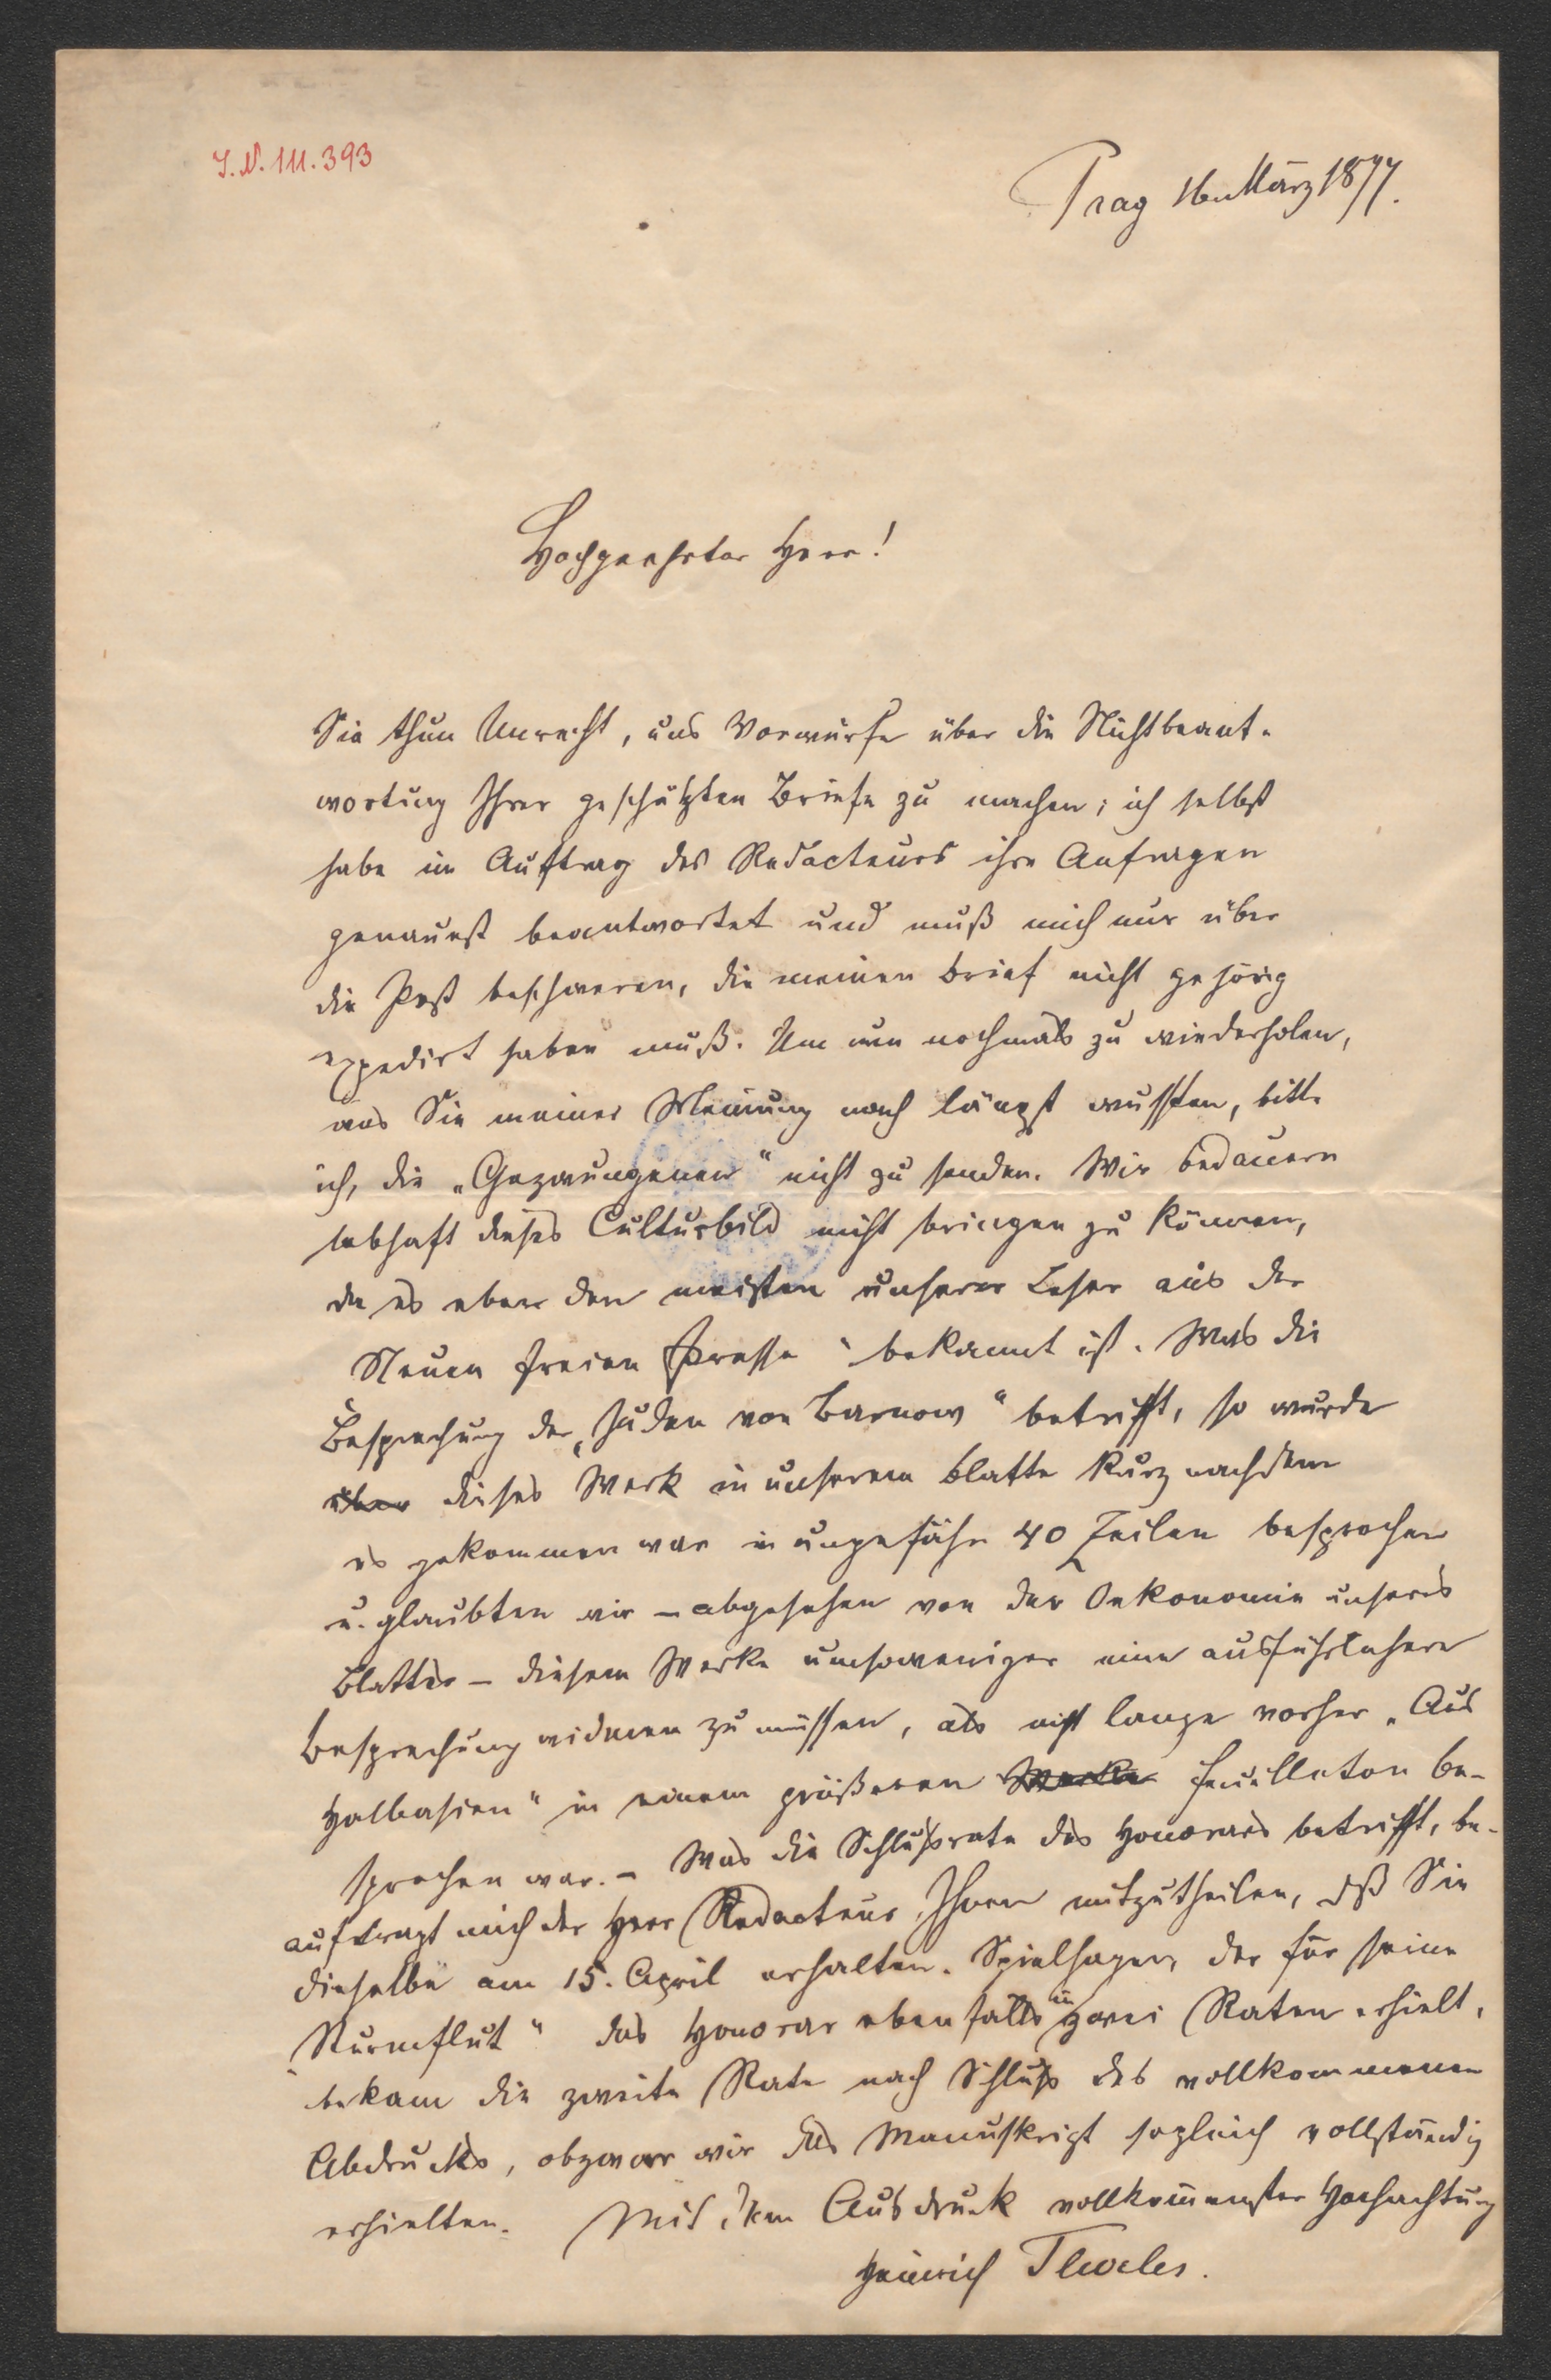 I.N. 111.393
Prag 16en März 1877.
Hochgeehrter Herr!
Sie thun Unrecht, uns Vorwürfe über die Nichtbeant-
wortung Ihrer geschätzten Briefe zu machen; ich selbst
habe im Auftrag des Redacteurs ihre Anfragen
genauest beantwortet und muß mich nur über
die Post beschweren, die meinen Brief nicht gehörig
expedirt haben muß. Um nun nochmals zu wiederholen,
was Sie meiner Meinung nach längst wußten, bitte
ich, die „Gezwungenen" nicht zu senden. Wir bedauern
lebhaft dieses Culturbild nicht bringen zu können,
da es eben den meisten unserer Leser aus der
Neuen freien Presse bekannt ist. Was die
Besprechung der „Juden von Barnow" betrifft, so wurde
über dieses Werk in unserem Blatte kurz nachdem
es gekommen war in ungefähr 40 Zeilen besprochen
u. glaubten wir – abgesehen von der Oekonomie unseres
Blattes – diesem Werke umsoweniger eine ausführlichere
Besprechung widmen zu müssen, als nicht lange vorher „Aus
Halbasien" in einem größeren Werke Feuilleton be-
sprochen war. – Was die Schlußrate des Honorars betrifft, be-
auftragt mich der Herr Redacteur, Ihnen mitzutheilen, dß Sie
dieselbe am 15. April erhalten. Spielhagen, der für seine
„Sturmflut" das Honorar ebenfalls in zwei Raten erhielt,
bekam die zweite Rate nach Schluß des vollkommenen
Abdrucks, obzwar wir das Manuskript sogleich vollständig
erhielten. Mit dem Ausdruck vollkommenster Hochachtung
Heinrich Teweles.